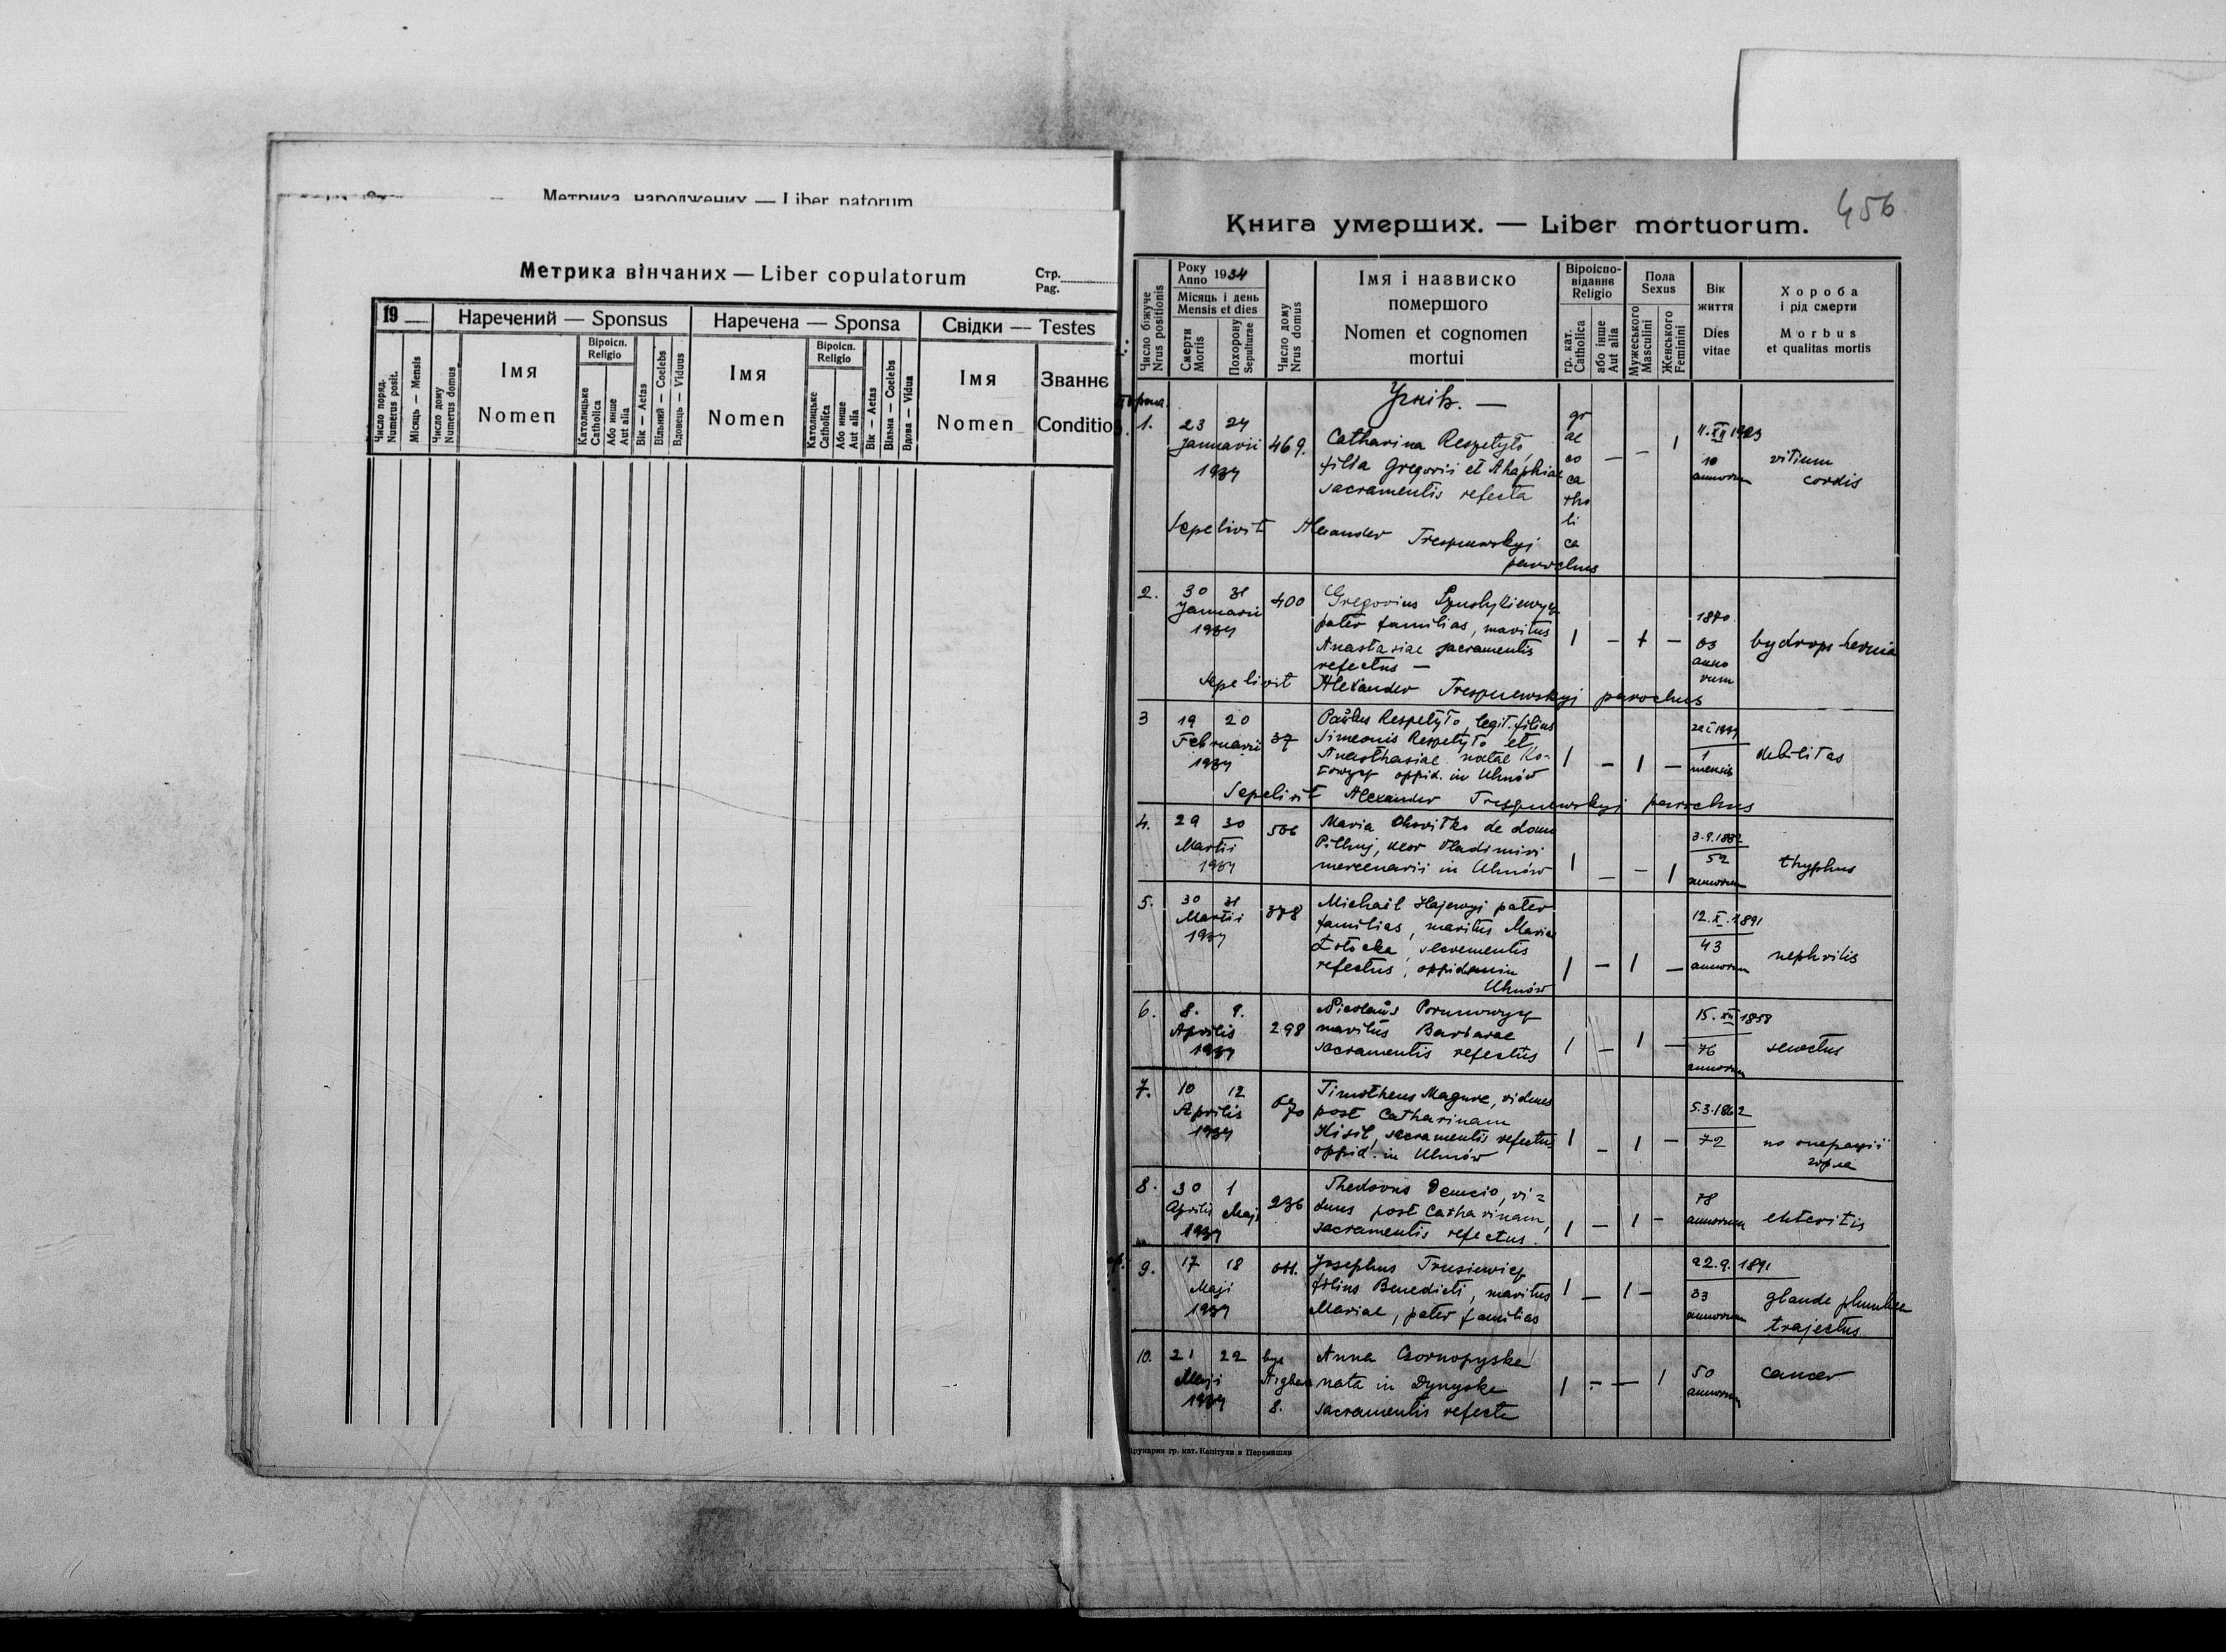 Метрика народжених — Liber natorum
Метрика вінчаних — Liber copulatorum
Стр.
Pag.
19
Наречений — Sponsus
Наречена — Sponsa
Свідки — Testes
Число поряд.
Numerus posit.
Місяць — Mensis
Число дому
Numerus domus
Імя
Nomen
Віроісп.
Religio
Католицьке
Catholica
Або инше
Aut alia
Вік — Aetas
Вільний — Coelebs
Вдовець — Viduus
Імя
Nomen
Віроісп.
Religio
Католицьке
Catholica
Або инше
Aut alia
Вік — Aetas
Вільна — Coelebs
Вдова — Vidua
Імя
Nomen
Званнє
Conditio
456
Книга умерших. — Liber mortuorum.
Число біжуче
Nrus positionis
Року
Anno 1934
Місяць і день
Mensis et dies
Смерти
Mortis
Похорону
Sepulturae
Число дому
Nrus domus
Імя і назвиско
помершого
Nomen et cognomen
mortui
Віроіспо-
віданнє
Religio
гр. кат.
Catholica
або інше
Aut alia
Пола
Sexus
Мужеського
Masculini
Женського
Feminini
Вік
життя
Dies
vitae
Хороба
і рід смерти
Morbus
et qualitas mortis
Угнів. —
1. 23 24
Januarii
1934
469.
Catharina Respetyło,
filia Gregorii et Ahaphiae
sacramentis refecta
gr
ae
co
ca
tho
li
ca
— — 1
11.XII 1923
10
annorum
vitium
cordis
Sepelivit Alexander
parochus
2. 30 31
Januarii
1934
400
Gregorius
pater familias, maritus
Anastasiae sacramentis
refectus —
1 — 1 —
1870.
63
anno
rum
hydrops hernia
Sepelivit Alexander parochus
3 19 20
Februarii
1934
37
Paulus Respetyło, legit. filius
Simeonis Respetyło et
Anasthasiae natae Ko-
oppid. in Uhnów
1 — 1 —
1
mensis
debilitas
Sepelivit Alexander parochus
4. 29 30
Martii
1934
506
Maria de domo
uxor Vladimiri
mercenarii in Uhnów
1 — — 1
3.9.1882
52
annorum
thyphus
5. 30 31
Martii
1934
378
Michaël pater
familias, maritus Mariae
sacramentis
refectus, oppid. in
Uhnów
1 — 1 —
12.X.1891
43
annorum
nephritis
6. 8. 9.
Aprilis
1934
298
Nicolaus
maritus Barbarae
sacramentis refectus
1 — 1 —
15.XII 1858
76
annorum
senectus
7. 10 12
Aprilis
1934
670
Timotheus, viduus
post Catharinam
Kisil, sacramentis refectus
oppid. in Uhnów
1 — 1 —
5.3.1862
72
по операції
горла
8. 30 1
Aprilis Maji
1934
236
Thedorus, vi=
duus post Catharinam,
sacramentis refectus.
1 — 1 —
78
annorum
enteritis
9. 17 18
Maji
1934
Josephus Trusiewicz
filius Benedicti, maritus
Mariae, pater familias
1 — 1 —
22.9.1891
33
annorum
glande plumbea
trajectus
10. 21 22
Maji
1934
8.
Anna Czornopyska
nata in Dynyska
sacramentis refecta
1 — — 1
50
annorum
cancer
Друкарня гр. кат. Капітули в Перемишли